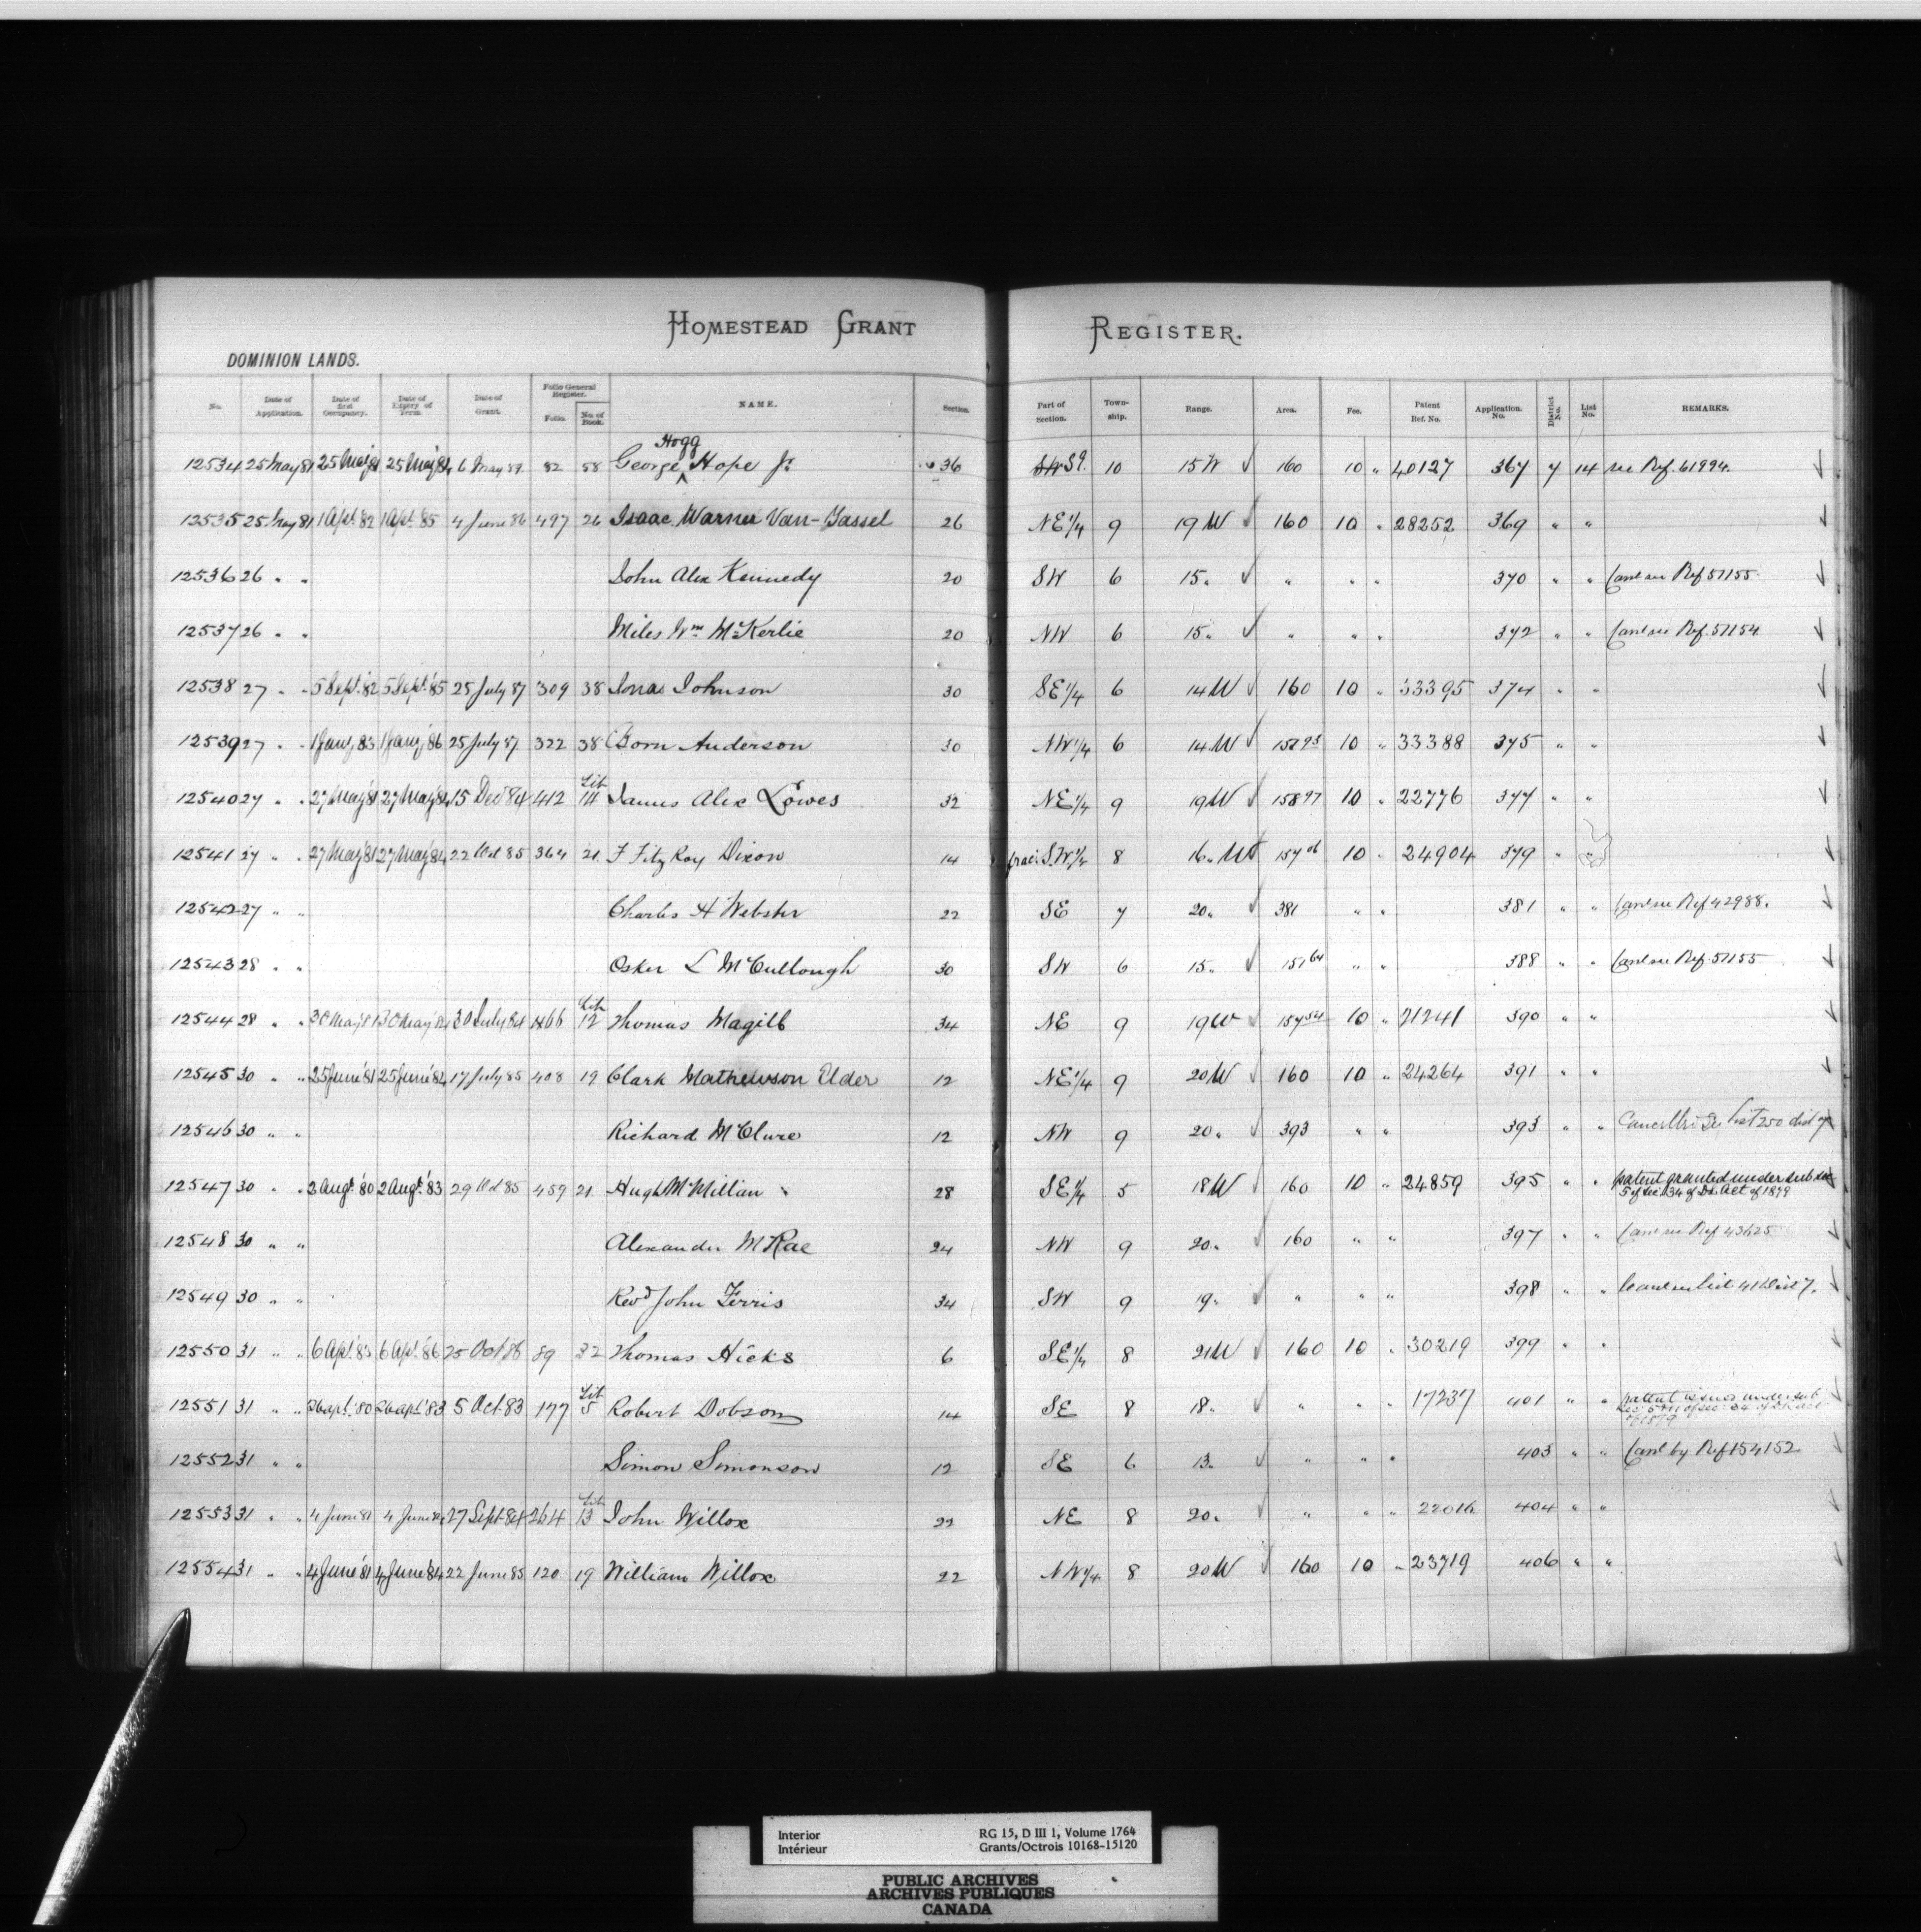 HOMESTEAD GRANT REGISTER.
DOMINION LANDS.
No. Date of Application. Date of first Occupancy. Date of Expiry of Term. Date of Grant. Folio General Register. Folio. No. of Book. NAME. Section. Part of Section. Township. Range. Area. Fee. Patent Ref. No. Application. No. District No. List No. REMARKS.
12534 25 May 81 25 May 81 25 May 84 6 May 89 82 58 George Hogg Hope Jr. 36 SW SE. 10 15 W 160 10 " 40127 367 7 14 see Ref. 61994.
12535 25 May 81 1 Apl. 82 1 Apl. 85 4 June 86 497 26 Isaac Warner Van-Tassel 26 NE 1/4 9 19 W 160 10 " 28252 369 " "
12536 26 " " John Alex Kennedy 20 SW 6 15 " " " " 370 " " Canl see Ref 51155.
12537 26 " " Miles Wm McKerlie 20 NW 6 15 " " " " 372 " " Canl see Ref. 51154
12538 27 " " 5 Sept. '82 5 Sept. '85 25 July 87 309 38 Jonas Johnson 30 SE 1/4 6 14 W 160 10 " 33395 374 " "
12539 27 " " 1 Jany 83 1 Jany '86 25 July 87 322 38 Born Anderson 30 NW 1/4 6 14 W 10 " 33388 375 " "
12540 27 " " 27 May 81 27 May 84 15 Dec 84 412 Lib 14 James Alex Lowes 32 NE 1/4 9 19 W 158 97 10 " 22776 377 " "
12541 27 " " 27 May 81 27 May 84 22 Oct 85 364 21 F Fitz Roy Dixon 14 frac: S.W. 1/4 8 16 " W 157 06 10 " 24904 379 " "
12542 27 " " Charles H Webster 22 SE 7 20 " 381 " " 381 " " Canl see Ref 42988.
12543 28 " " Osker L McCullough 30 SW 6 15 " 151 64 " " 388 " " Canl see Ref. 51155
12544 28 " " 30 May 81 30 May 84 30 July 84 466 Lib 12 Thomas Magill 34 NE 9 19 W 157 54 10 " 21241 390 " "
12545 30 " " 25 June '81 25 June '84 17 July 85 408 19 Clark Mathewson Elder 12 NE 1/4 9 20 W 160 10 " 24264 391 " "
12546 30 " " Richard McClure 12 NW 9 20 " 393 " " 393 " " See List 250 dist 7
12547 30 " " 2 Augt. 80 2 Augt. '83 29 Oct 85 459 21 Hugh McMillan 28 SE 1/4 5 18 W 160 10 " 24859 395 " " patent granted under sub sec 5 of sec 34 of DL Act of 1879
12548 30 " " Alexander McRae 24 NW 9 20 " 160 " " 397 " " Canl see Ref 43625
12549 30 " " Revd John Ferris 34 SW 9 19 " " " " 398 " " Canl see List 41 Dist 7.
12550 31 " " 6 Apl. '83 6 Apl. '86 25 Oct '86 89 32 Thomas Hicks 6 SE 1/4 8 21 W 160 10 " 30219 399 " "
12551 31 " " 26 apl. '80 26 apl '83 5 Oct. 83 177 Lib 5 Robert Dobson 14 SE 8 18 " " " " 17237 401 " " patent issued under sub sec: 5 of sec: 34 of DL act of 1879
12552 31 " " Simon Simonson 12 SE 6 13 " " " " 403 " " Canl by Ref 154152
12553 31 " " 4 June 81 4 June 84 27 Sept 84 264 Lib 13 John Willox 22 NE 8 20 " " " " 22016 404 " "
12554 31 " " 4 June '81 4 June '84 22 June 85 120 19 William Willox 22 NW 1/4 8 20 W 160 10 " 23719 406 " "
Interior RG 15, D III 1, Volume 1764
Intérieur Grants/Octrois 10168-15120
PUBLIC ARCHIVES
ARCHIVES PUBLIQUES
CANADA